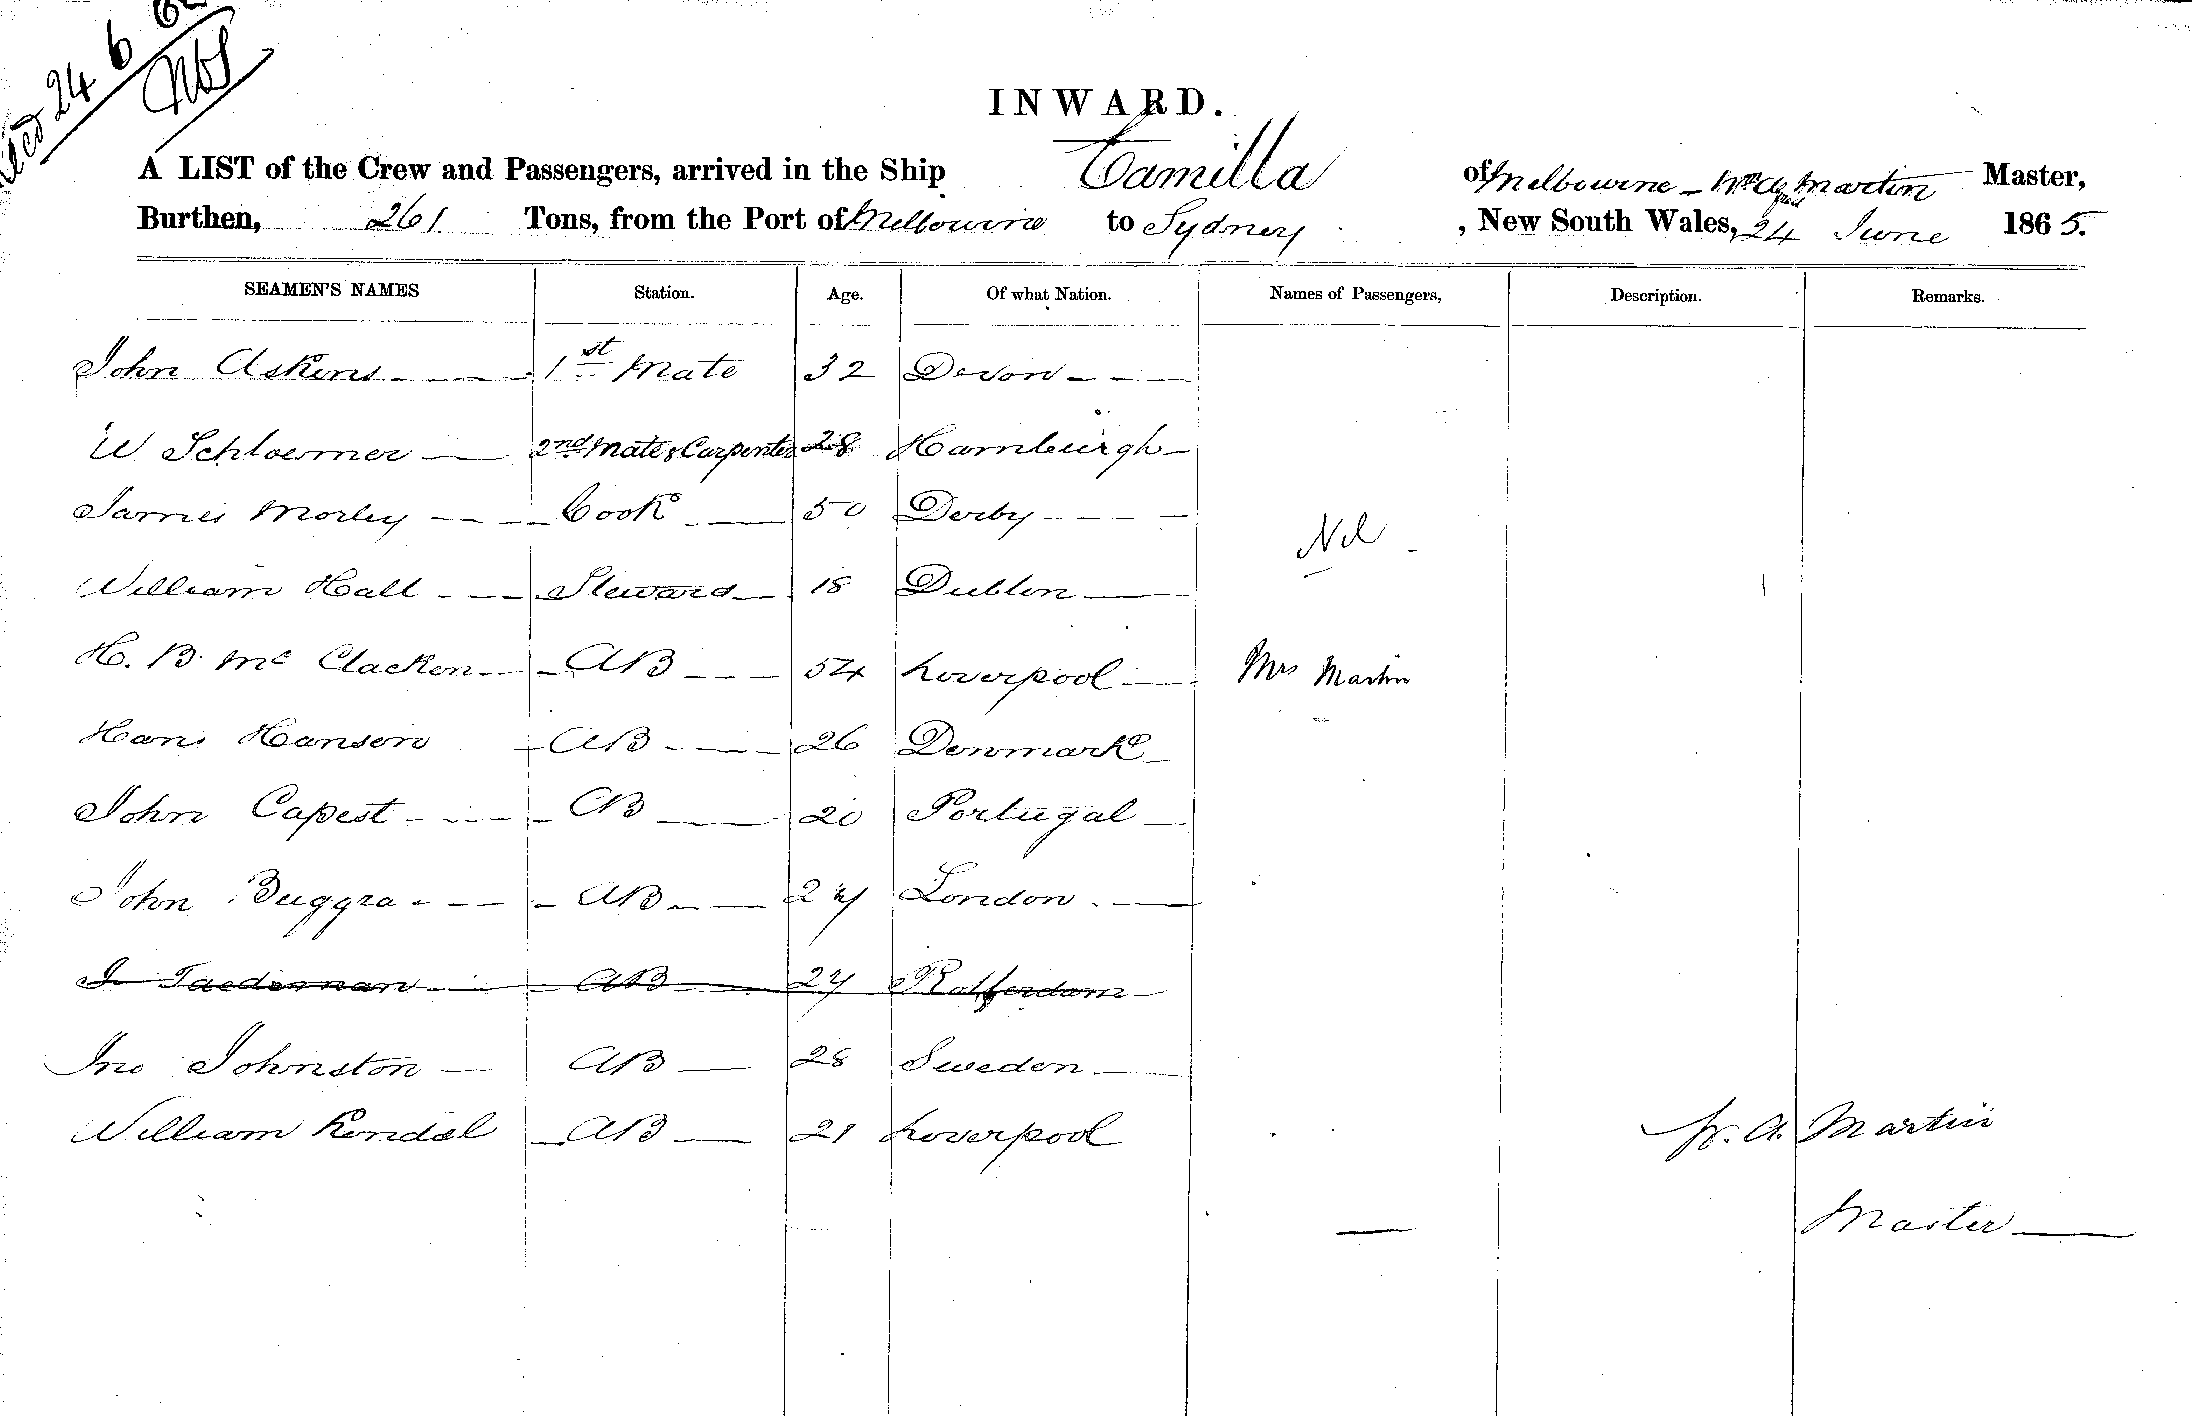 24 6 65
INWARD.
A LIST of the Crew and Passengers, arrived in the Ship Camilla of Melbourne - Martin Master,
Burthen, 261 Tons, from the Port of Melbourne to Sydney, New South Wales, 24 June 1865.
SEAMEN'S NAMES Station. Age. Of what Nation. Names of Passengers, Description. Remarks.
John Askins 1st Mate 32 Devon
W Schloemer 2nd Mate & Carpenter 28 Hamburgh
James Morley Cook 50 Derby
Nil
William Hall Steward 18 Dublin
H. B. Mc Clacken AB 54 Liverpool Mrs Martin
Hans Hansen AB 26 Denmark
John Capest AB 20 Portugal
John Buggra AB 27 London
AB 27 Rotterdam
Jno Johnston AB 28 Sweden
William Kendal AB 21 Liverpool W. A. Martin
Master